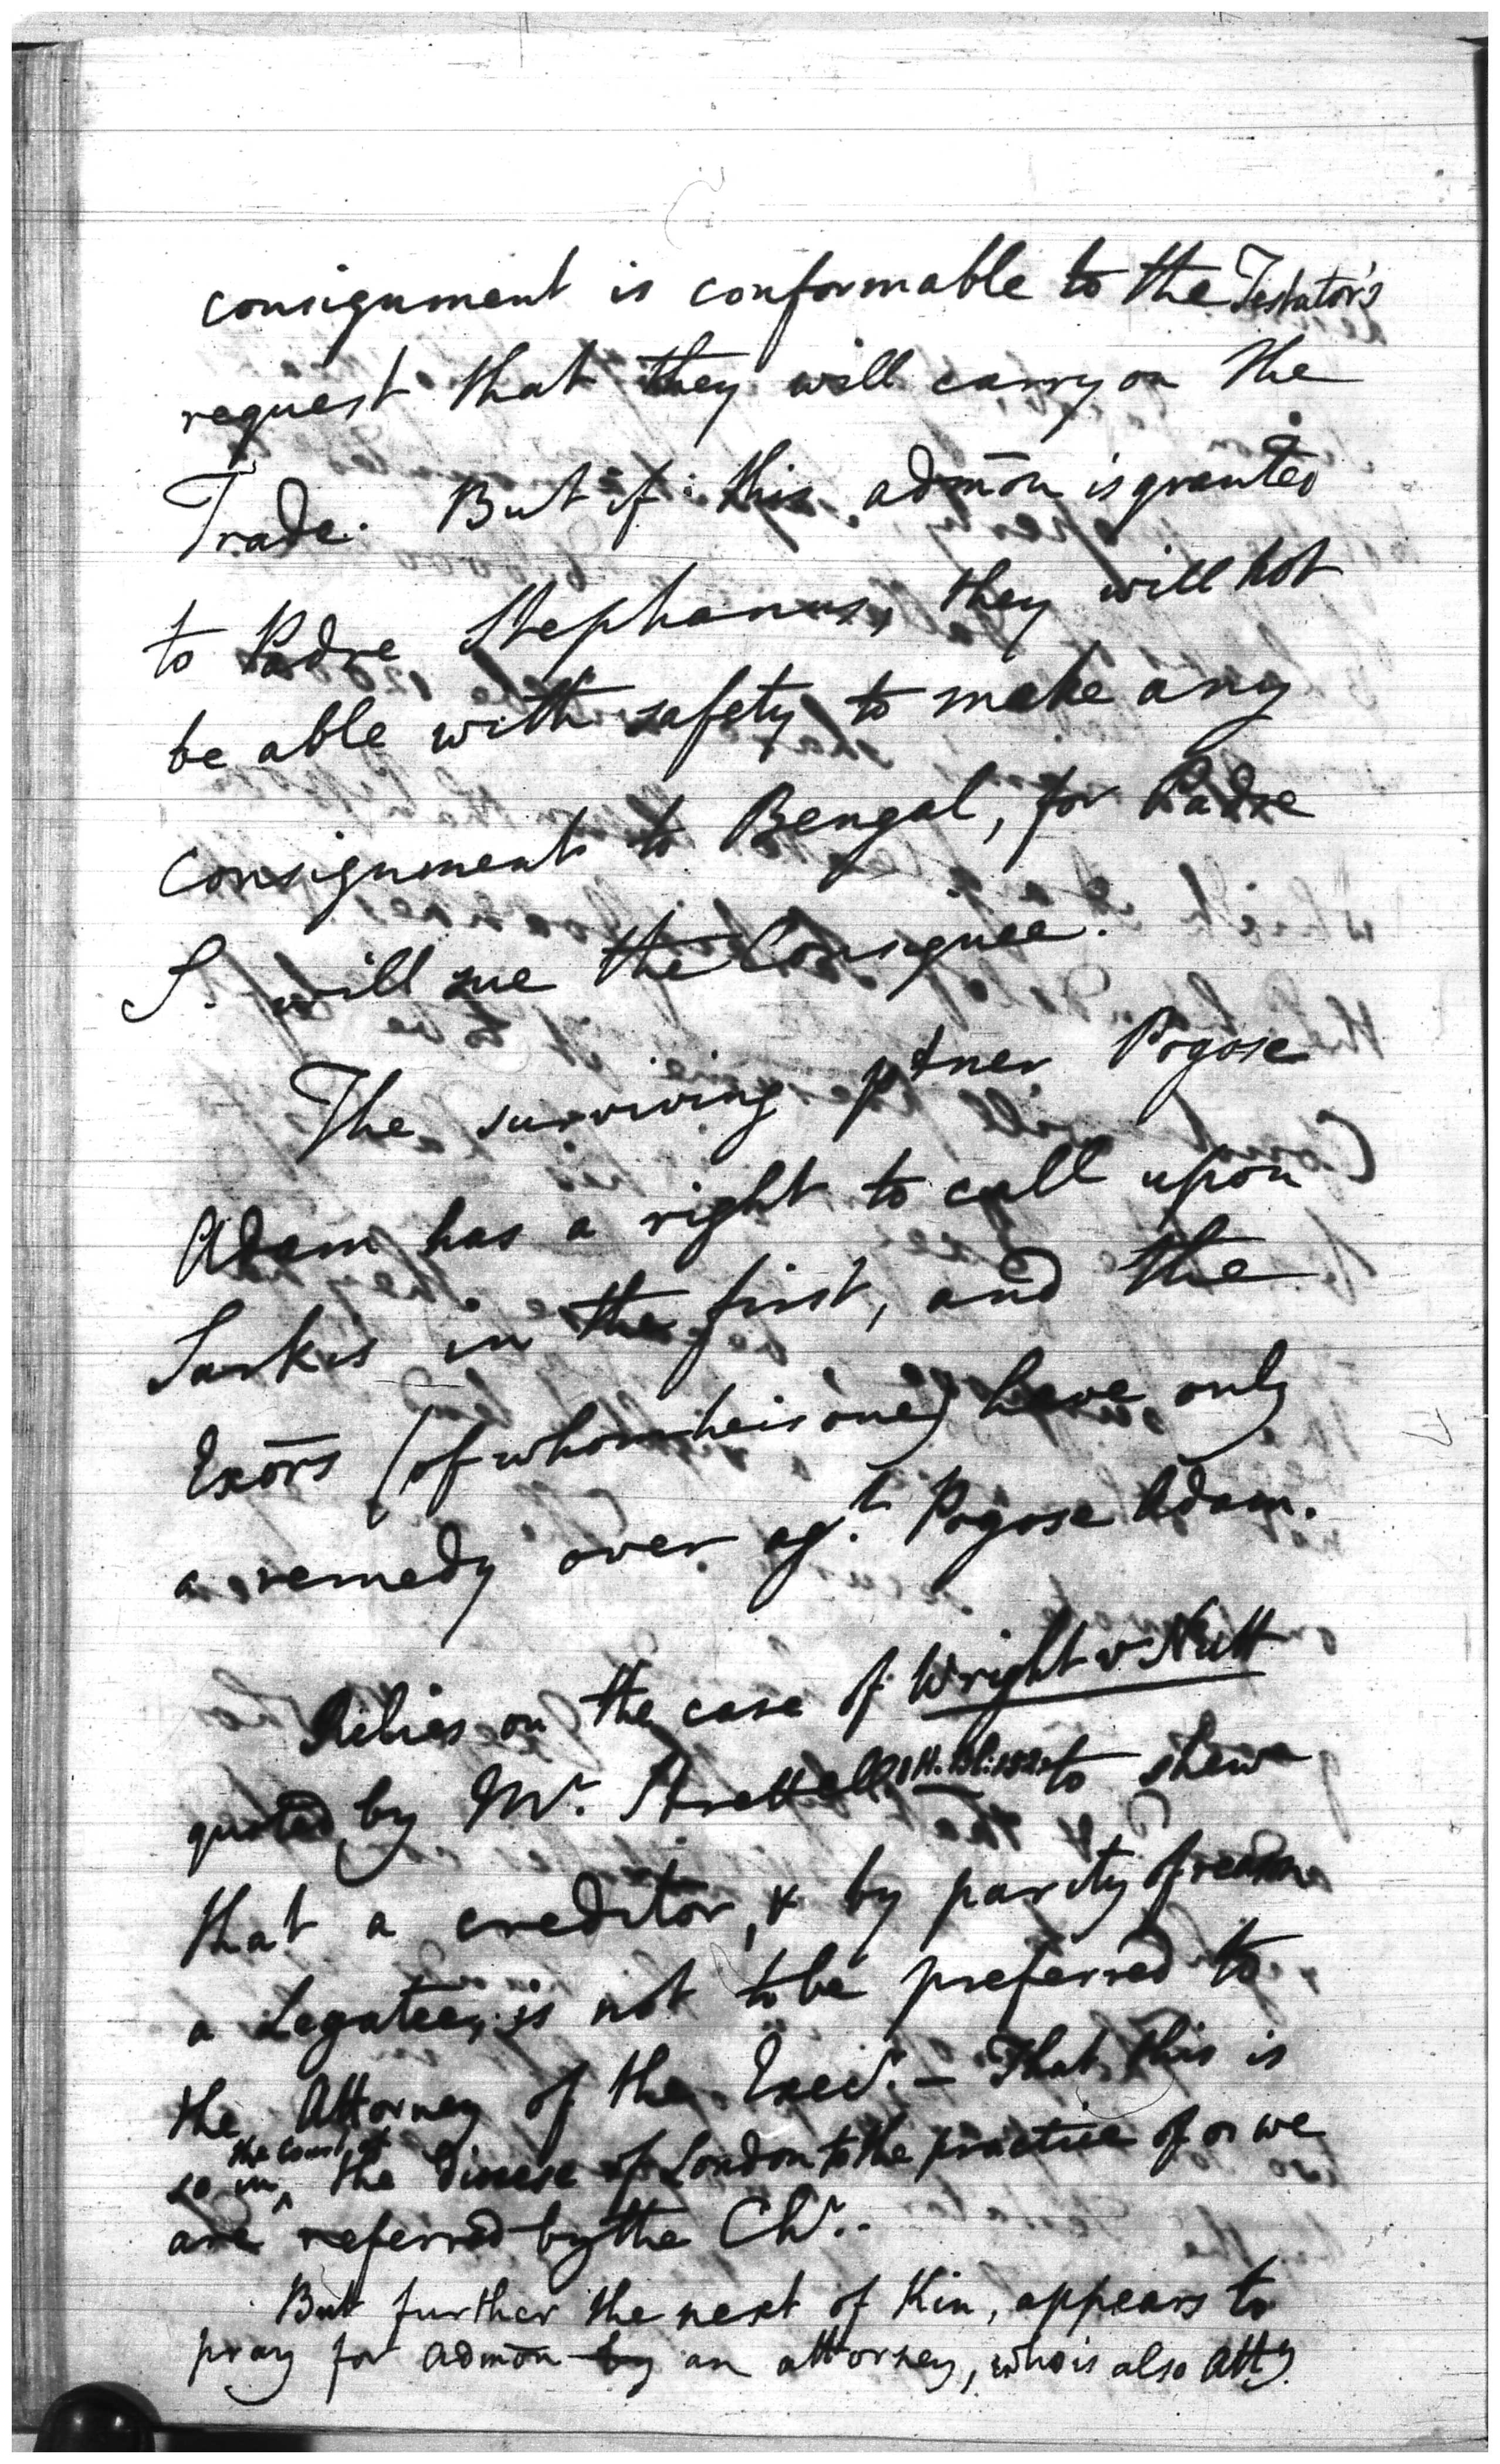 consignment is conformable to the Testator's
request that they will carry on the
Trade. But if this admōn is granted
to Padre Stephanus, they will not
be able with safety to make any
consignments to Bengal, for Padre
S. will sue the Consignee.
The surviving ptner Pogose
Adam has a right to call upon
Sarkis in the first, and the
Exōrs (of whom he is one) have only
a remedy over agt. Pogose Adam.
Relies on the case of Wright v Nutt
quoted by Mr. Strettell 1 H. Bl: 132 to shew
that a creditor, & by parity of reason
a Legatee, is not to be preferred to
the Attorney of the Exec. – That this is
the Court of
so in ^ the Diocese of London to the practice of or we
are referred by the Chr..
But further the next of Kin, appears to
pray for admōn by an attorney, who is also Atty